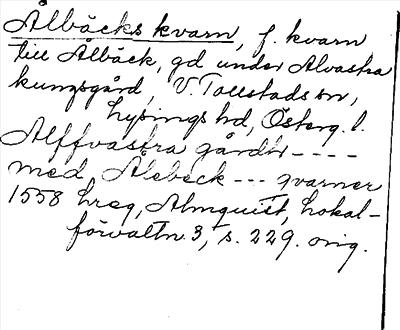 Ålbäcks kvarn, f. kvarn
till Ålbäck, gd under Alvastra
kungsgård, V. Tollstads sn,
Lysings hd, Österg. l.
Alffvastra gårdh ----
med Alebeck --- qvarner
1558 hreg, Almquist, Lokal-
förvaltn. 3, s. 229. orig.